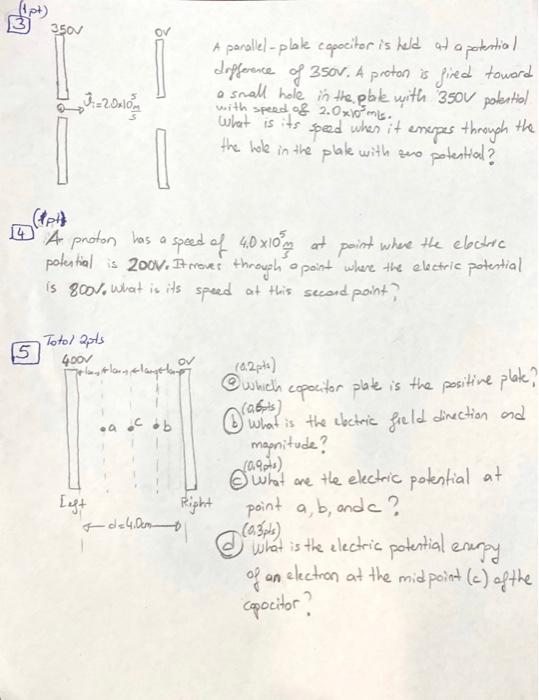 (1pt)
3 350V 0V
A parallel-plate capacitor is held at a potential
difference of 350V. A proton is fired toward
a small hole in the plate with 350V potential
with speed of 2.0x10⁵ m/s.
Vi=2.0x10⁵ m/s
What is its speed when it emerges through the
the hole in the plate with zero potential?
(1pt)
4 A proton has a speed of 4.0x10⁵ m/s at point where the electric
potential is 200V. It moves through a point where the electric potential
is 800V. What is its speed at this second point?
5 Total 2pts
400V 0V
1cm 1cm 1cm 1cm
.a .c .b
Left Right
d=4.0cm
(0.2pts)
(a) Which capacitor plate is the positive plate?
(0.6pts)
(b) What is the electric field direction and
magnitude?
(0.9pts)
(c) What are the electric potential at
point a, b, and c?
(0.3pts)
(d) What is the electric potential energy
of an electron at the midpoint (c) of the
capacitor?